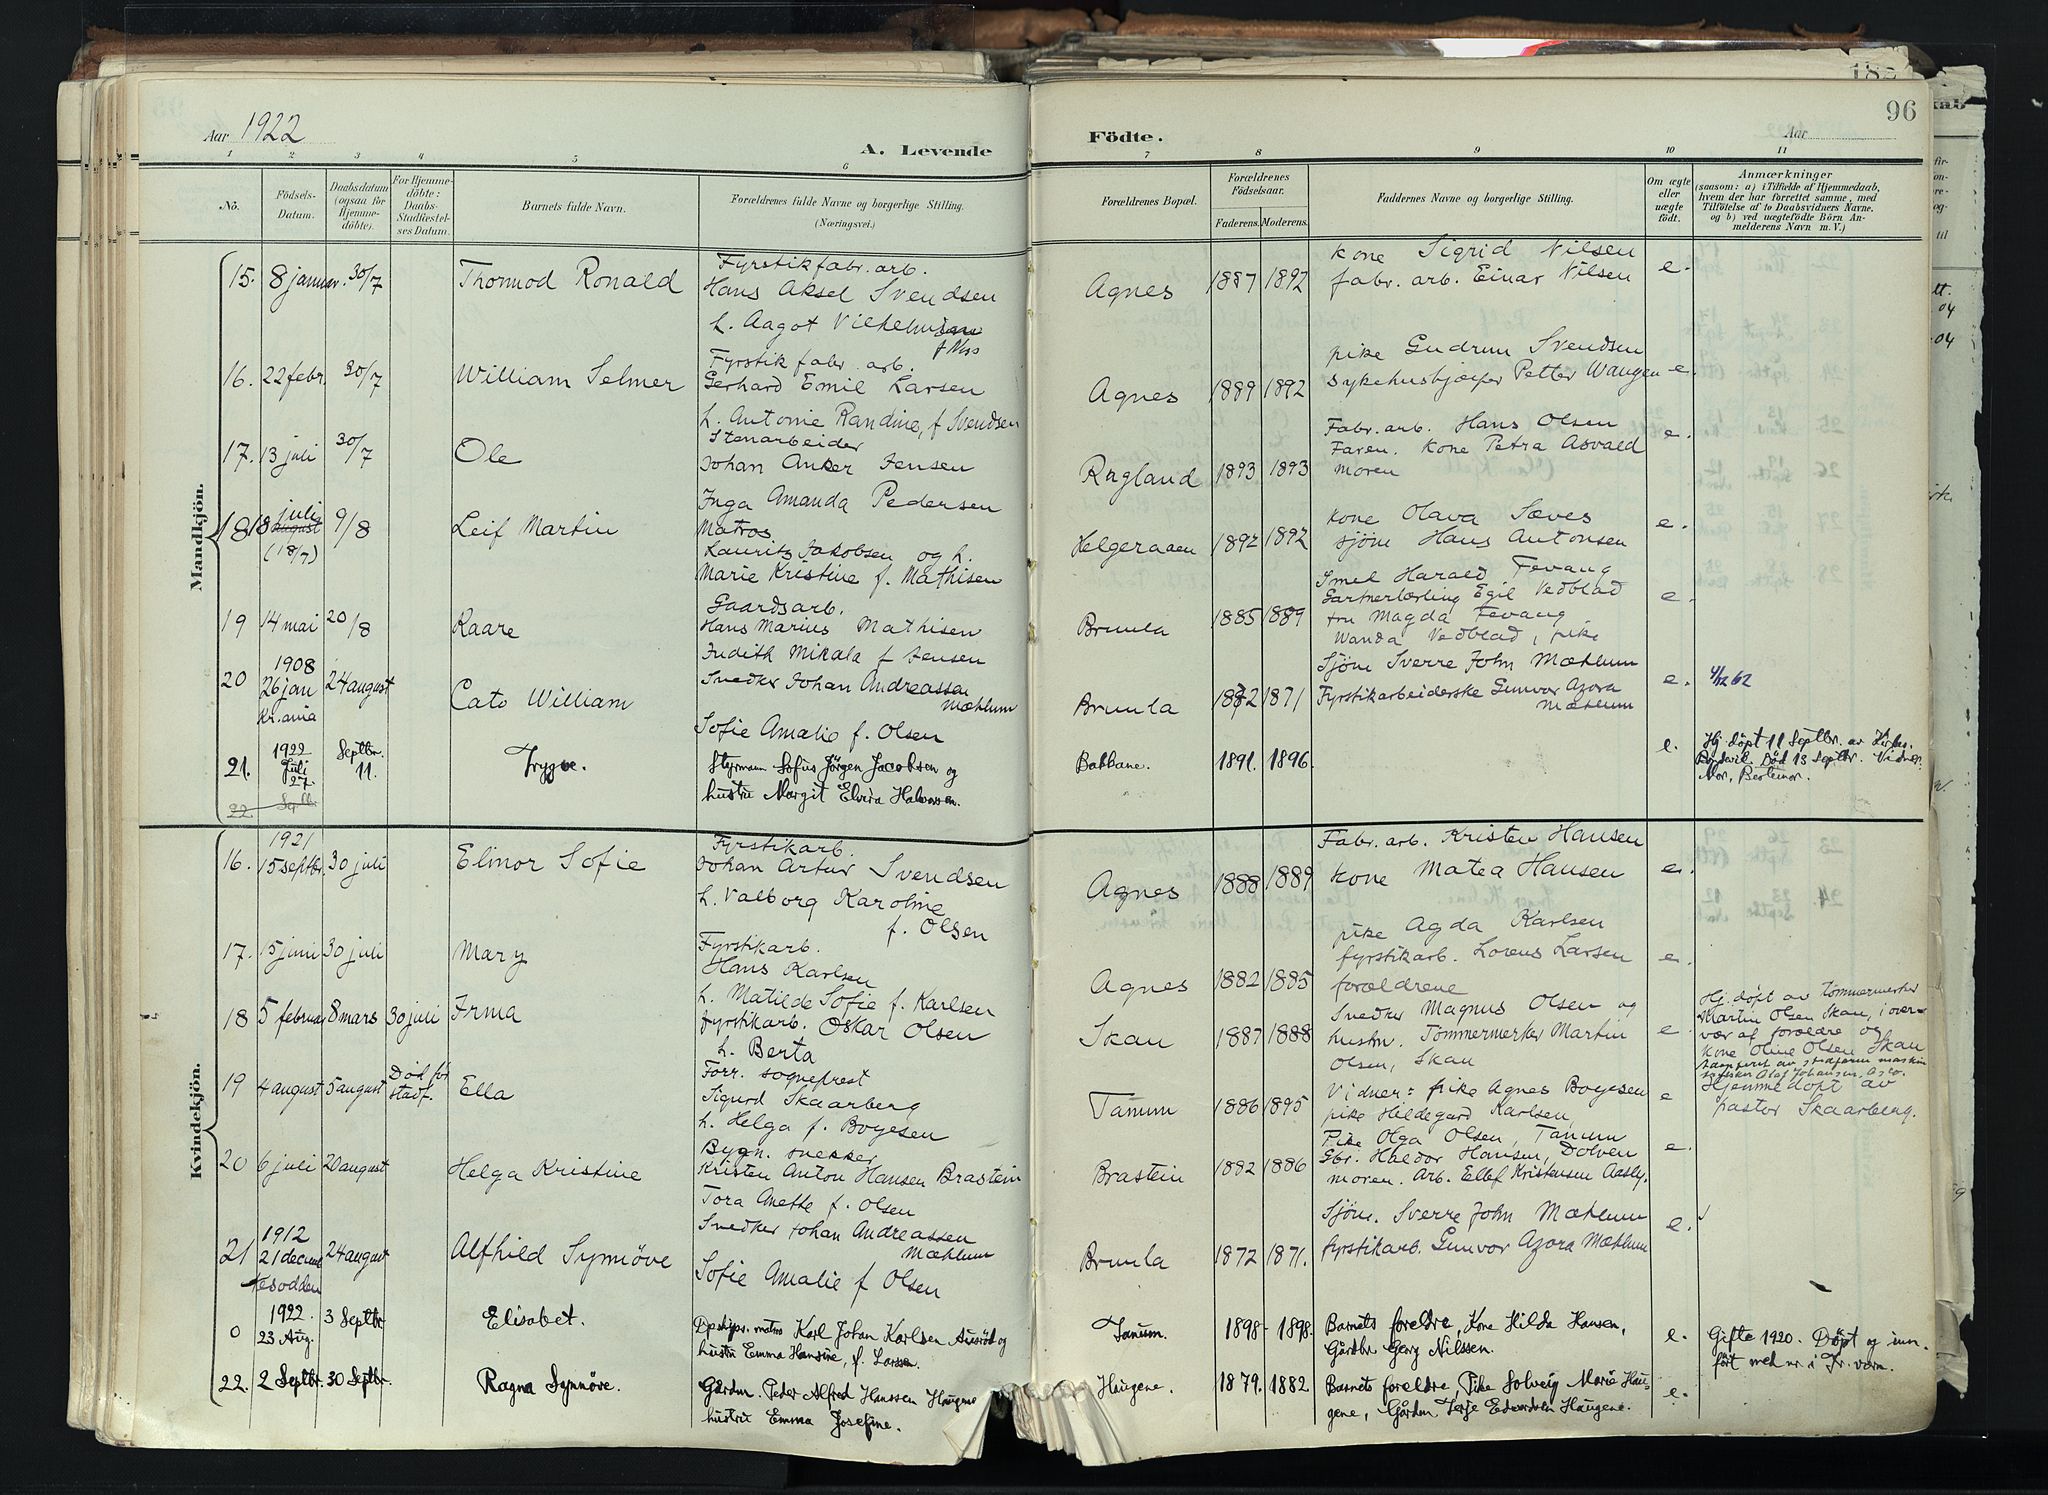 96
Aar 1922
A. Levende
Födte.
Aar
1 2 3 4 5 6 7 8 9 10 11
No.
Födsels-Datum.
Daabsdatum (ogsaa for Hjemmedöbte).
For Hjemmedöbte: Daabs-Stadfæstelses Datum.
Barnets fulde Navn.
Forældrenes fulde Navne og borgerlige Stilling.
(Næringsvei.)
Forældrenes Bopæl.
Forældrenes Födselsaar.
Faderens. Moderens.
Faddernes Navne og borgerlige Stilling.
Om ægte eller uægte födt.
Anmærkninger
(saasom: a) i Tilfælde af Hjemmedaab, hvem der har forrettet samme, med Tilföielse af to Daabsvidners Navne. og b) ved uægtefödte Börn Anmelderens Navn m. V.)
Mandkjön.
15. 8 januar. 30/7 Thormod Ronald
Fyrstikfabr. arb.
Hans Aksel Svendsen
h. Aagot Vilhelmine
f Ness
Agnes 1887 1892
kone Sigrid Nilsen
fabr. arb. Einar Nilsen
e.
16. 22 febr. 30/7 William Selmer
Fyrstik fabr. arb.
Gerhard Emil Larsen
h. Antonie Randine, f Svendsen
Agnes 1889 1892
pike Gudrun Svendsen
Sykehusbjelper Petter Wangen
e.
17. 13 juli 30/7 Ole
Stenarbeider
Johan Anker Jensen
Inga Amanda Pedersen
Ragland 1893 1893
Fabr. arb. Hans Olsen
Faren. Kone Petra Asvald
Moren
e.
18 18 juli
august
(18/7) 9/8 Leif Martin
Matros
Lauritz Jakobsen og h.
Marie Kristine f. Mathisen
Helgeraaen 1892 1892
kone Olava Sæves
sjöm Hans Antonsen
e.
19 14 mai 20/8 Kaare
Gaardsarb.
Hans Marius Mathisen
Judith Mikala f Jensen
Brunla 1885 1889
Smed Harald Fevang
Gartnerlærling Egil Vedblad
fru Magda Fevang
Wanda Vedblad, pike
e.
20 1908
26 jan
Kr.ania 24 august Cato William
Snedker Johan Andreassen
Mæhlum
Sofie Amalie f. Olsen
Brunla 1872 1871
Sjöm Sverre John Mæhlum
Fyrstikarbeiderske Gunvor Azora
Mæhlum
e. 4/12 62
21. 1922
Juli
27. Septbr.
11. Trygve.
Styrmann Sofus Jørgen Jacobsen og
hustru Margit Elvira Halvorsen.
Bakkane. 1891. 1896.
e. Hj. døpt 11 Septbr. av
Død 13 Septbr. Vidner:
Mor, Bestemor.
22 Septbr.
Kvindekjön.
16. 1921
15 septbr. 30 juli Elinor Sofie
Fyrstikarb.
Johan Artur Svendsen
h. Valborg Karoline
f. Olsen
Agnes 1888 1889
Fabr. arb. Kristen Hansen
kone Matea Hansen
e.
17. 15 juni 30 juli Mary
Fyrstikarb.
Hans Karlsen
h. Matilde Sofie f. Karlsen
Agnes 1882 1885
pike Agda Karlsen
fyrstikarb. Lorens Larsen
forældrene
e.
18 5 februar 8 mars 30 juli Irma
fyrstikarb. Oskar Olsen
h. Berta
Skau 1887 1888
Snedker Magnus Olsen og
hustru. Tömmermerker Martin
Olsen, Skau
e
Hj. döpt av Tömmermerker
Martin Olsen Skau, i over-
vær af foreldre og
kone Oline Olsen Skau
19 4 august 5 august Död før
stadf. Ella
Forr. sogneprest
Sigurd Skaarberg
h. Helga f. Boyesen
Tanum 1886 1895
Vidner: pike Agnes Boyesen
pike Hildegard Karlsen,
e
Hjemmedöpt av
pastor Skaarberg.
20 6 juli 20 august Helga Kristine
Bygn. snekker
Kristen Anton Hansen Brastein
Tora Anette f. Olsen
Brastein 1882 1886
Pike Olga Olsen, Tanum
Gbr. Haldor Hansen, Dolven
moren. Arb. Ellef Kristensen Aasly.
e.
21 1912
21 decemb
Nesodden 24 august Alfhild Synnöve
Snedker Johan Andreassen
Mæhlum
Sofie Amalie f Olsen
Brunla 1872 1871.
Sjöm. Sverre John Mæhlum
fyrstikarb. Gunvor Azora Mæhlum
e.
0 1922.
23 Aug. 3 Septbr Elisabet.
Dpskipr. matros Karl Johan Karlsen Aurød og
hustru Emma Hansine, f. Larsen.
Tanum. 1898- 1898.
Barnets foreldre, Kone Hilda Hansen,
Gårdbr Georg Nilssen.
e.
Gifte 1920. Døpt og inn-
ført med nr. i Fr. vern.
22. 2 Septbr. 30 Septbr. Ragna Synnöve.
Gårdm. Peder Alfred Hanssen Haugene
hustru Emma Josefine.
Haugene. 1879. 1882
Barnets foreldre, Pike Solveig Marie Hau-
gene, Gårdm. Terje Edvardsen Haugene.
e.